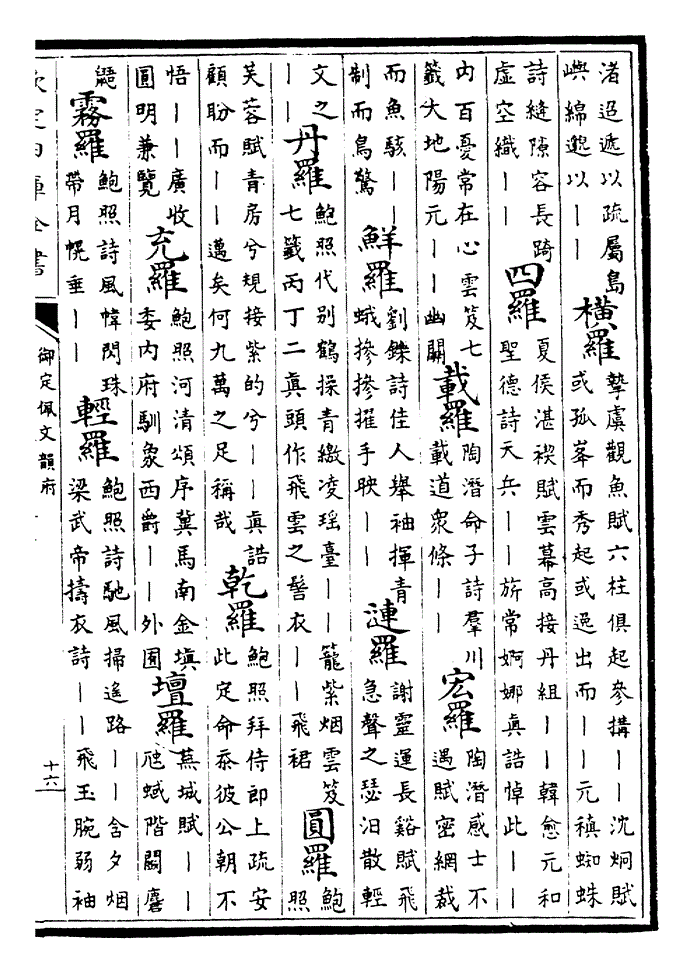 渚迢遞以疏屬島
嶼綿邈以——
橫羅
摯虞觀魚賦六柱俱起參搆——沈炯賦
或孤峯而秀起或逸出而——元稹蜘蛛
詩縫隙容長踦
虛空織——
四羅
夏侯湛禊賦雲幕高接丹組——韓愈元和
聖德詩天兵——旂常婀娜真誥悼此——
內百憂常在心雲笈七
籤大地陽元——幽關
載羅
陶潛命子詩羣川
載道衆條——
宏羅
陶潛感士不
遇賦密網裁
而魚駭——
制而鳥驚
鮮羅
劉鑠詩佳人舉袖揮青
蛾摻摻擢手映——
漣羅
謝靈運長谿賦飛
急聲之瑟汨散輕
文之
——
丹羅
鮑照代别鶴操青繳凌瑶臺——籠紫烟雲笈
七籤丙丁二真頭作飛雲之髻衣——飛裙
圓羅
鮑
照
芙蓉賦青房兮規接紫的兮——真誥
顧盼而——邁矣何九萬之足稱哉
乾羅
鮑照拜侍郎上疏安
此定命忝彼公朝不
悟——廣收
圓明兼覽
充羅
鮑照河清頌序冀馬南金填
委内府馴象西爵——外囿
壇羅
蕪城賦——
虺蜮階鬭麏
鼯
霧羅
鮑照詩風幃閃珠
帶月幌垂——
輕羅
鮑照詩馳風掃遙路——含夕烟
梁武帝擣衣詩——飛玉腕弱袖
欽定四庫全書
御定佩文韻府
十六